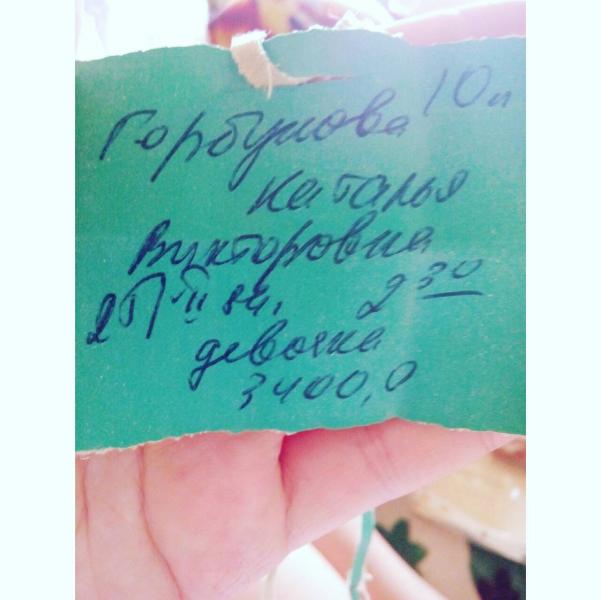 Горбунова 10п
Наталья
Викторовна
II 84. 2 30
девочка
3400,0